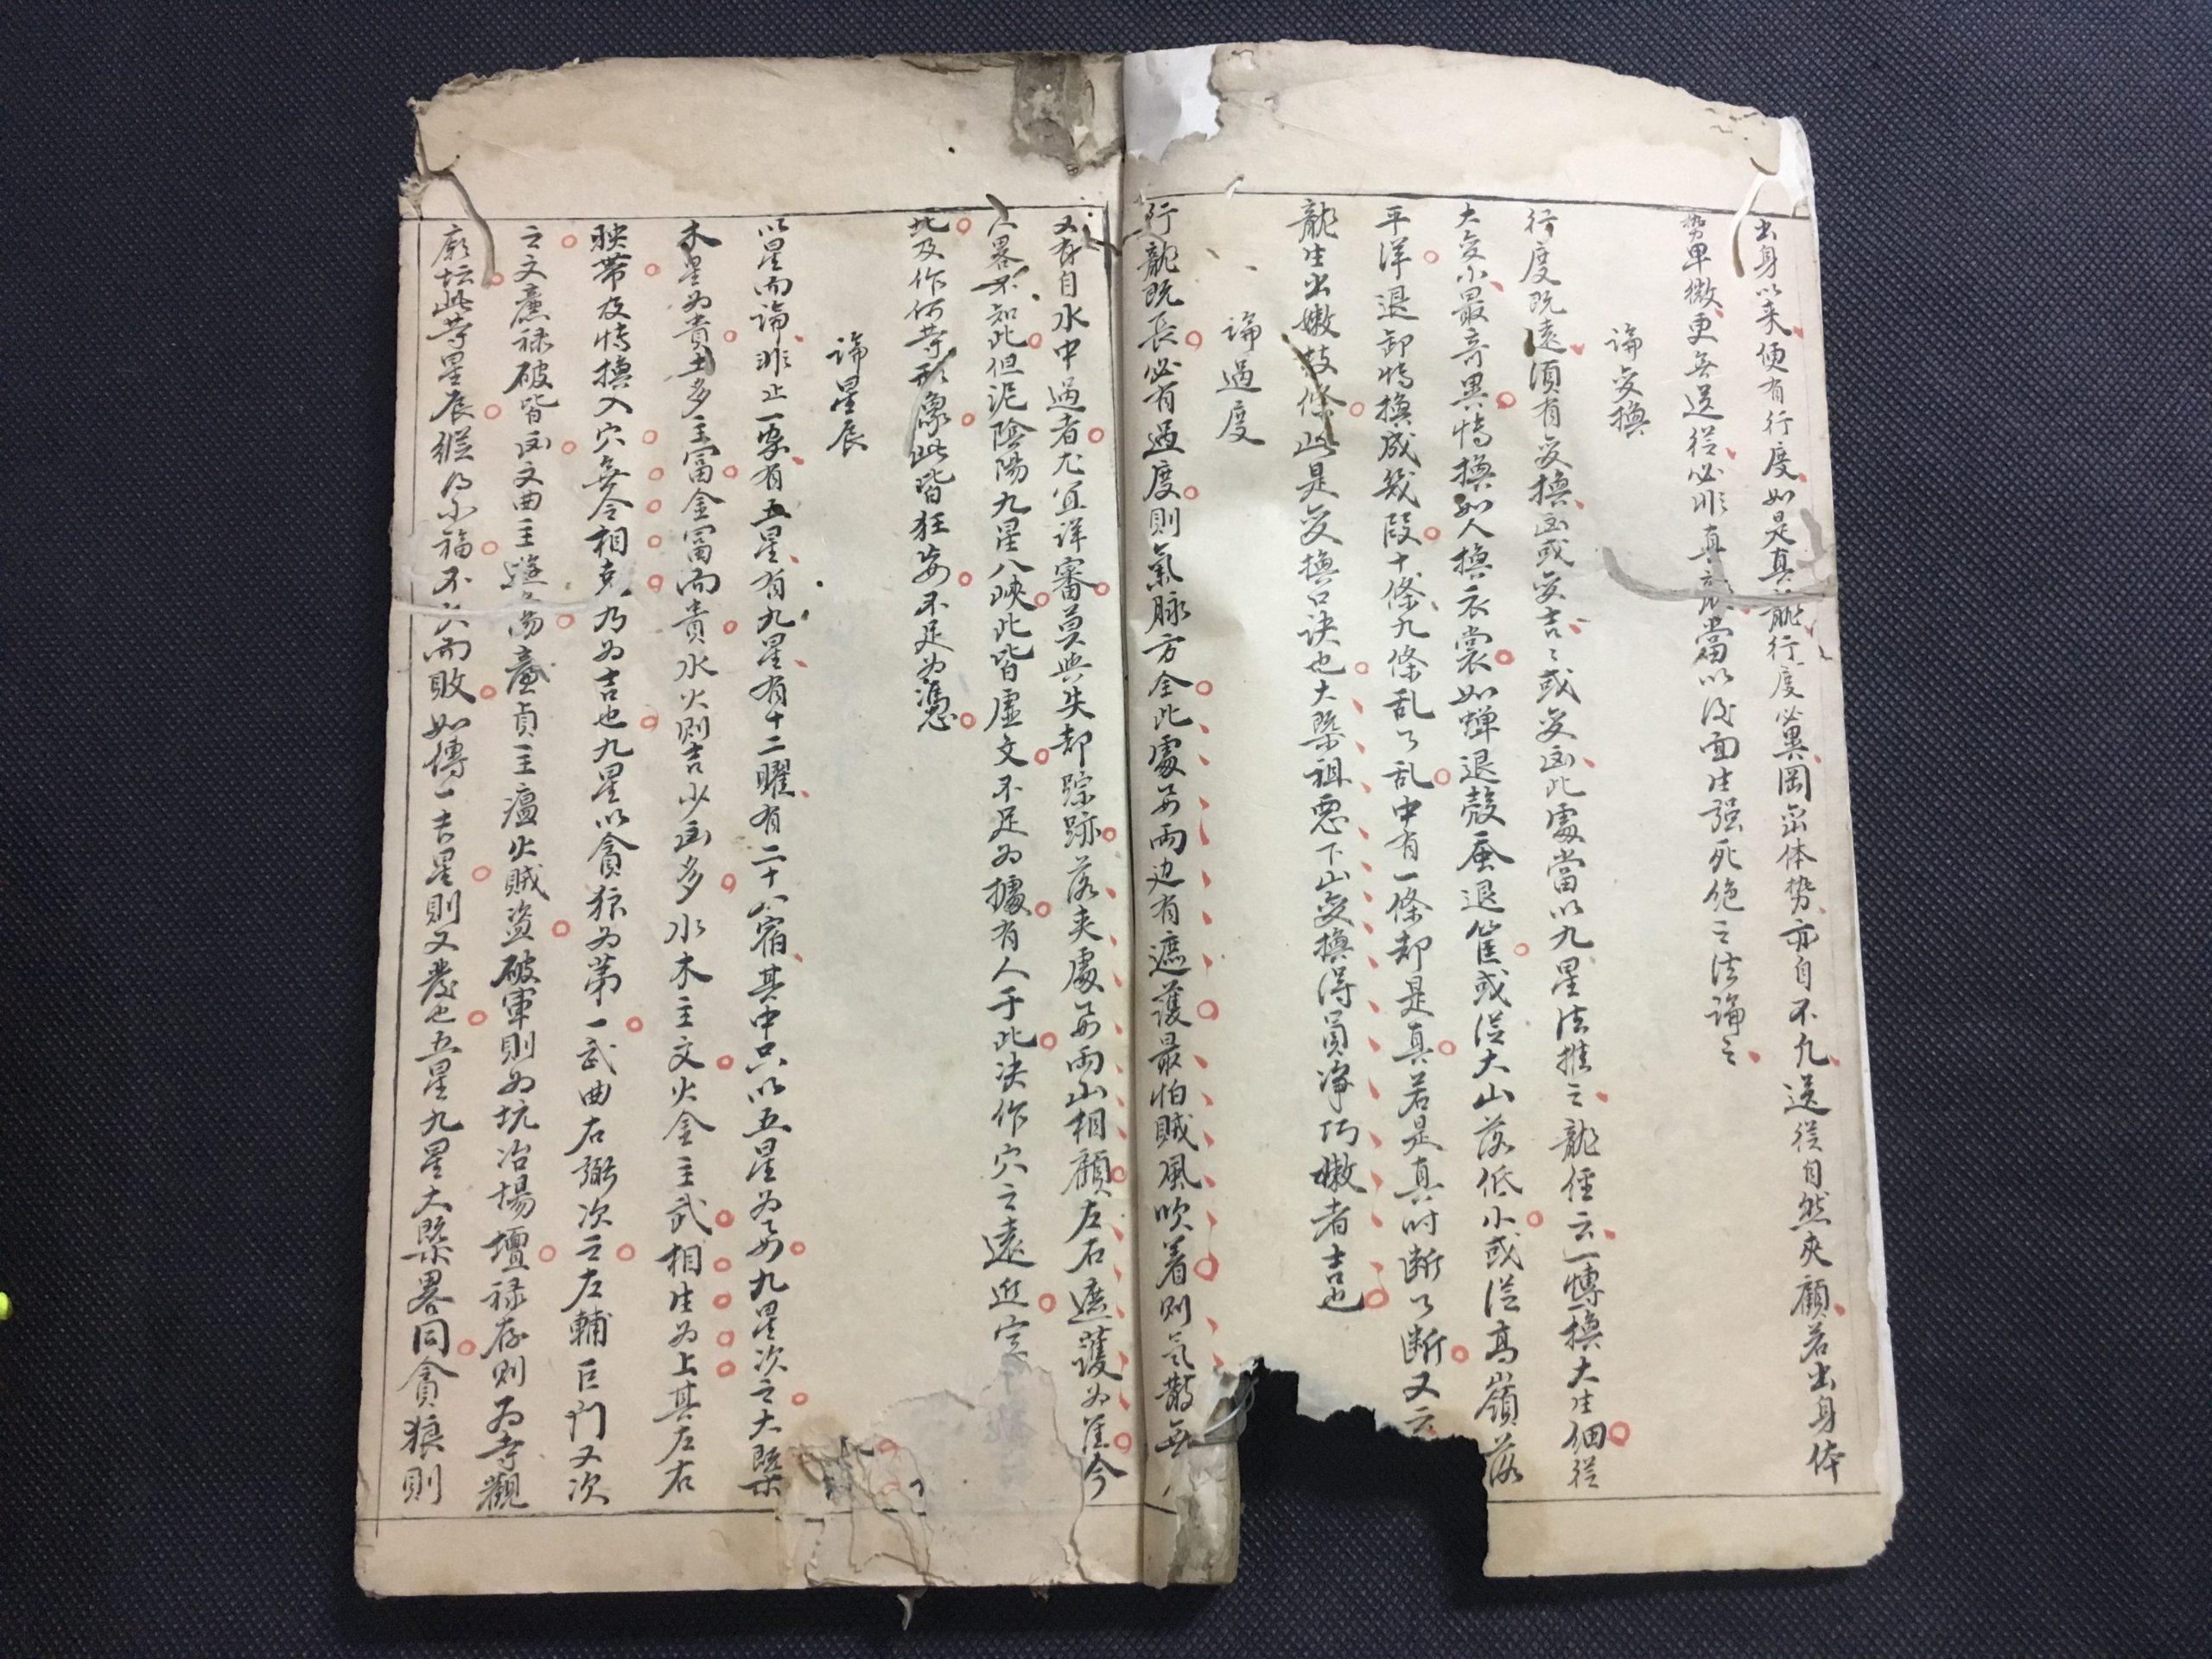 出身以来便有行度如是真龍行度必異岡渁体势亦自不凢送従自然夾顧若出身体
势卑微更无送従必非真龍當以後面生强死绝之法論之
論変換
行度既遠須有変換凶或変吉吉或変凶此處當以九星法推之龍経云一博一換大生细従
大変小最奇異博換如人換衣裳如蝉退殻蚕退筐或従大山落低小或従髙嶺落
平洋退卸博換成幾段十條九條乱了乱中有一條却是真若是真时断了断又云
龍生出嫩枝條此是変換口诀也大槩祖恶下山変換得员净巧嫩者吉也
論過度
行龍既長必有過度則氣脉方全此處要兩边有遮護最怕賊風吹着則气散無
又有自水中過者尤宜详審莫與失却踪跡落夹處要兩山相顧左右遮護为准今
人畧不知此但泥陰陽九星八映此皆虚文不足为據有人于此决作穴之遠近定
此及作何等形像此皆狂妄不足为憑
論星辰
以星而論非止一端有五星有九星有十二曜有二十八宿其中只以五星为要九星次之大槩
木星为貴土多主富金富而貴水火则吉少凶多水木主文火金主武相生为上其左右
映帶及博換入穴无令相克乃为吉也九星以貪狼为第一武曲右弼次之左輔巨門又次
之文廉禄破皆凶文曲主遊荡廉貞主瘟火賊盗破軍則为坑冶場壇禄存则为寺觀
廟坛此等星辰縦得小福不久而敗如傳一吉星則又發也五星九星大槩畧同貪狼則